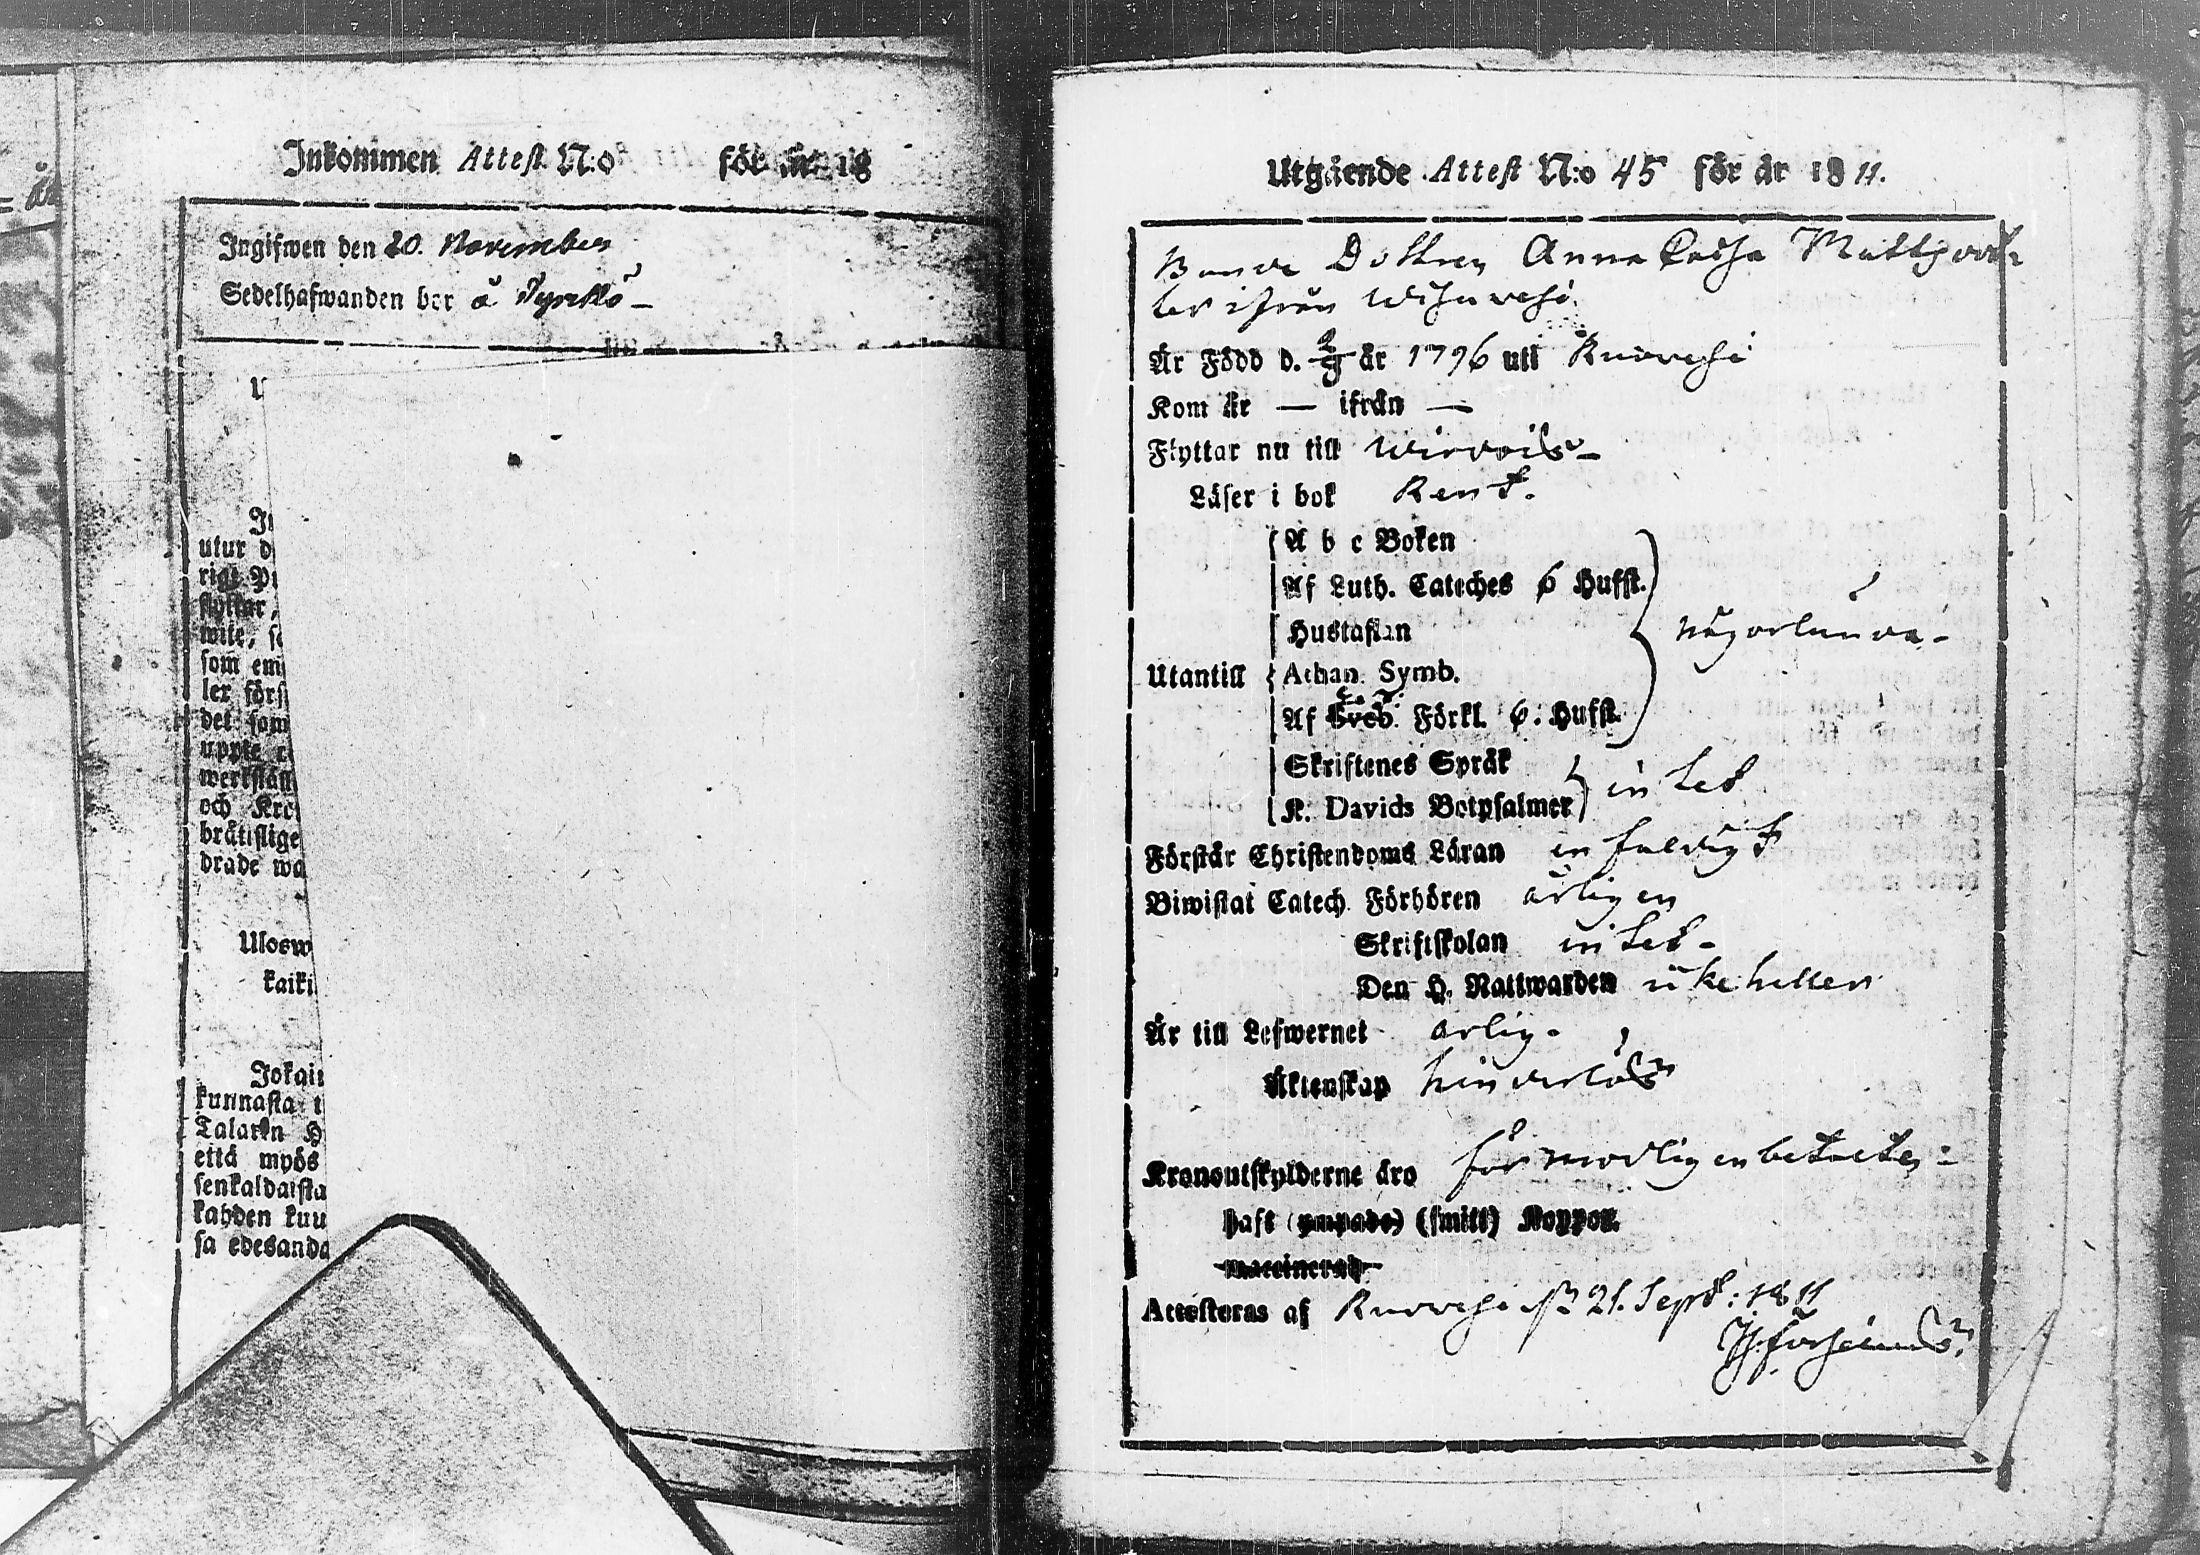 Inkommen Attest N:o för år 18
Ingifwen den 20. November
Sedelhafwanden bor å Tyrckö -
utur d
rigt P
flyttar,
wite, s
som em
ler förs
det sam
uppte
werkställ
och Kro
brätislige
drade wa
Ulosw
kaiki
Jokai
kunnasta t
Talaren H
että myös
senkaldaista
kahden kuu
sa edesanda
Utgående Attest N:o 45 för år 1811.
Bonde Dottren Anna Caisa Mattzdot-
ter ifrån
Är Född d. 2/9 år 1796 uti Ruovesi
Kom år — ifrån —
Flyttar nu till Wirdois -
Läser i bok Rent.
A b c Boken
Af Luth. Cateches 6 Hufst.
Hustaflan
någorlunda -
Utantill Athan. Symb.
Af Sveb. Förkl. 6. Hufst.
Skriftenes Språk
intet
K. Davids Botpsalmer
Förstår Christendoms Läran enfaldigt
Biwistat Catech. Förhören årligen
Skriftskolan intet -
Den H. Nattwarden icke heller
Är till Lefwernet ärlig.
Äktenskap hinderlös
Kronoutskylderne äro förmodligen betalte
haft (ympade) (smitt) Koppor.
vaccinerad
Attesteras af Ruovesi d. 21. Sept: 1811